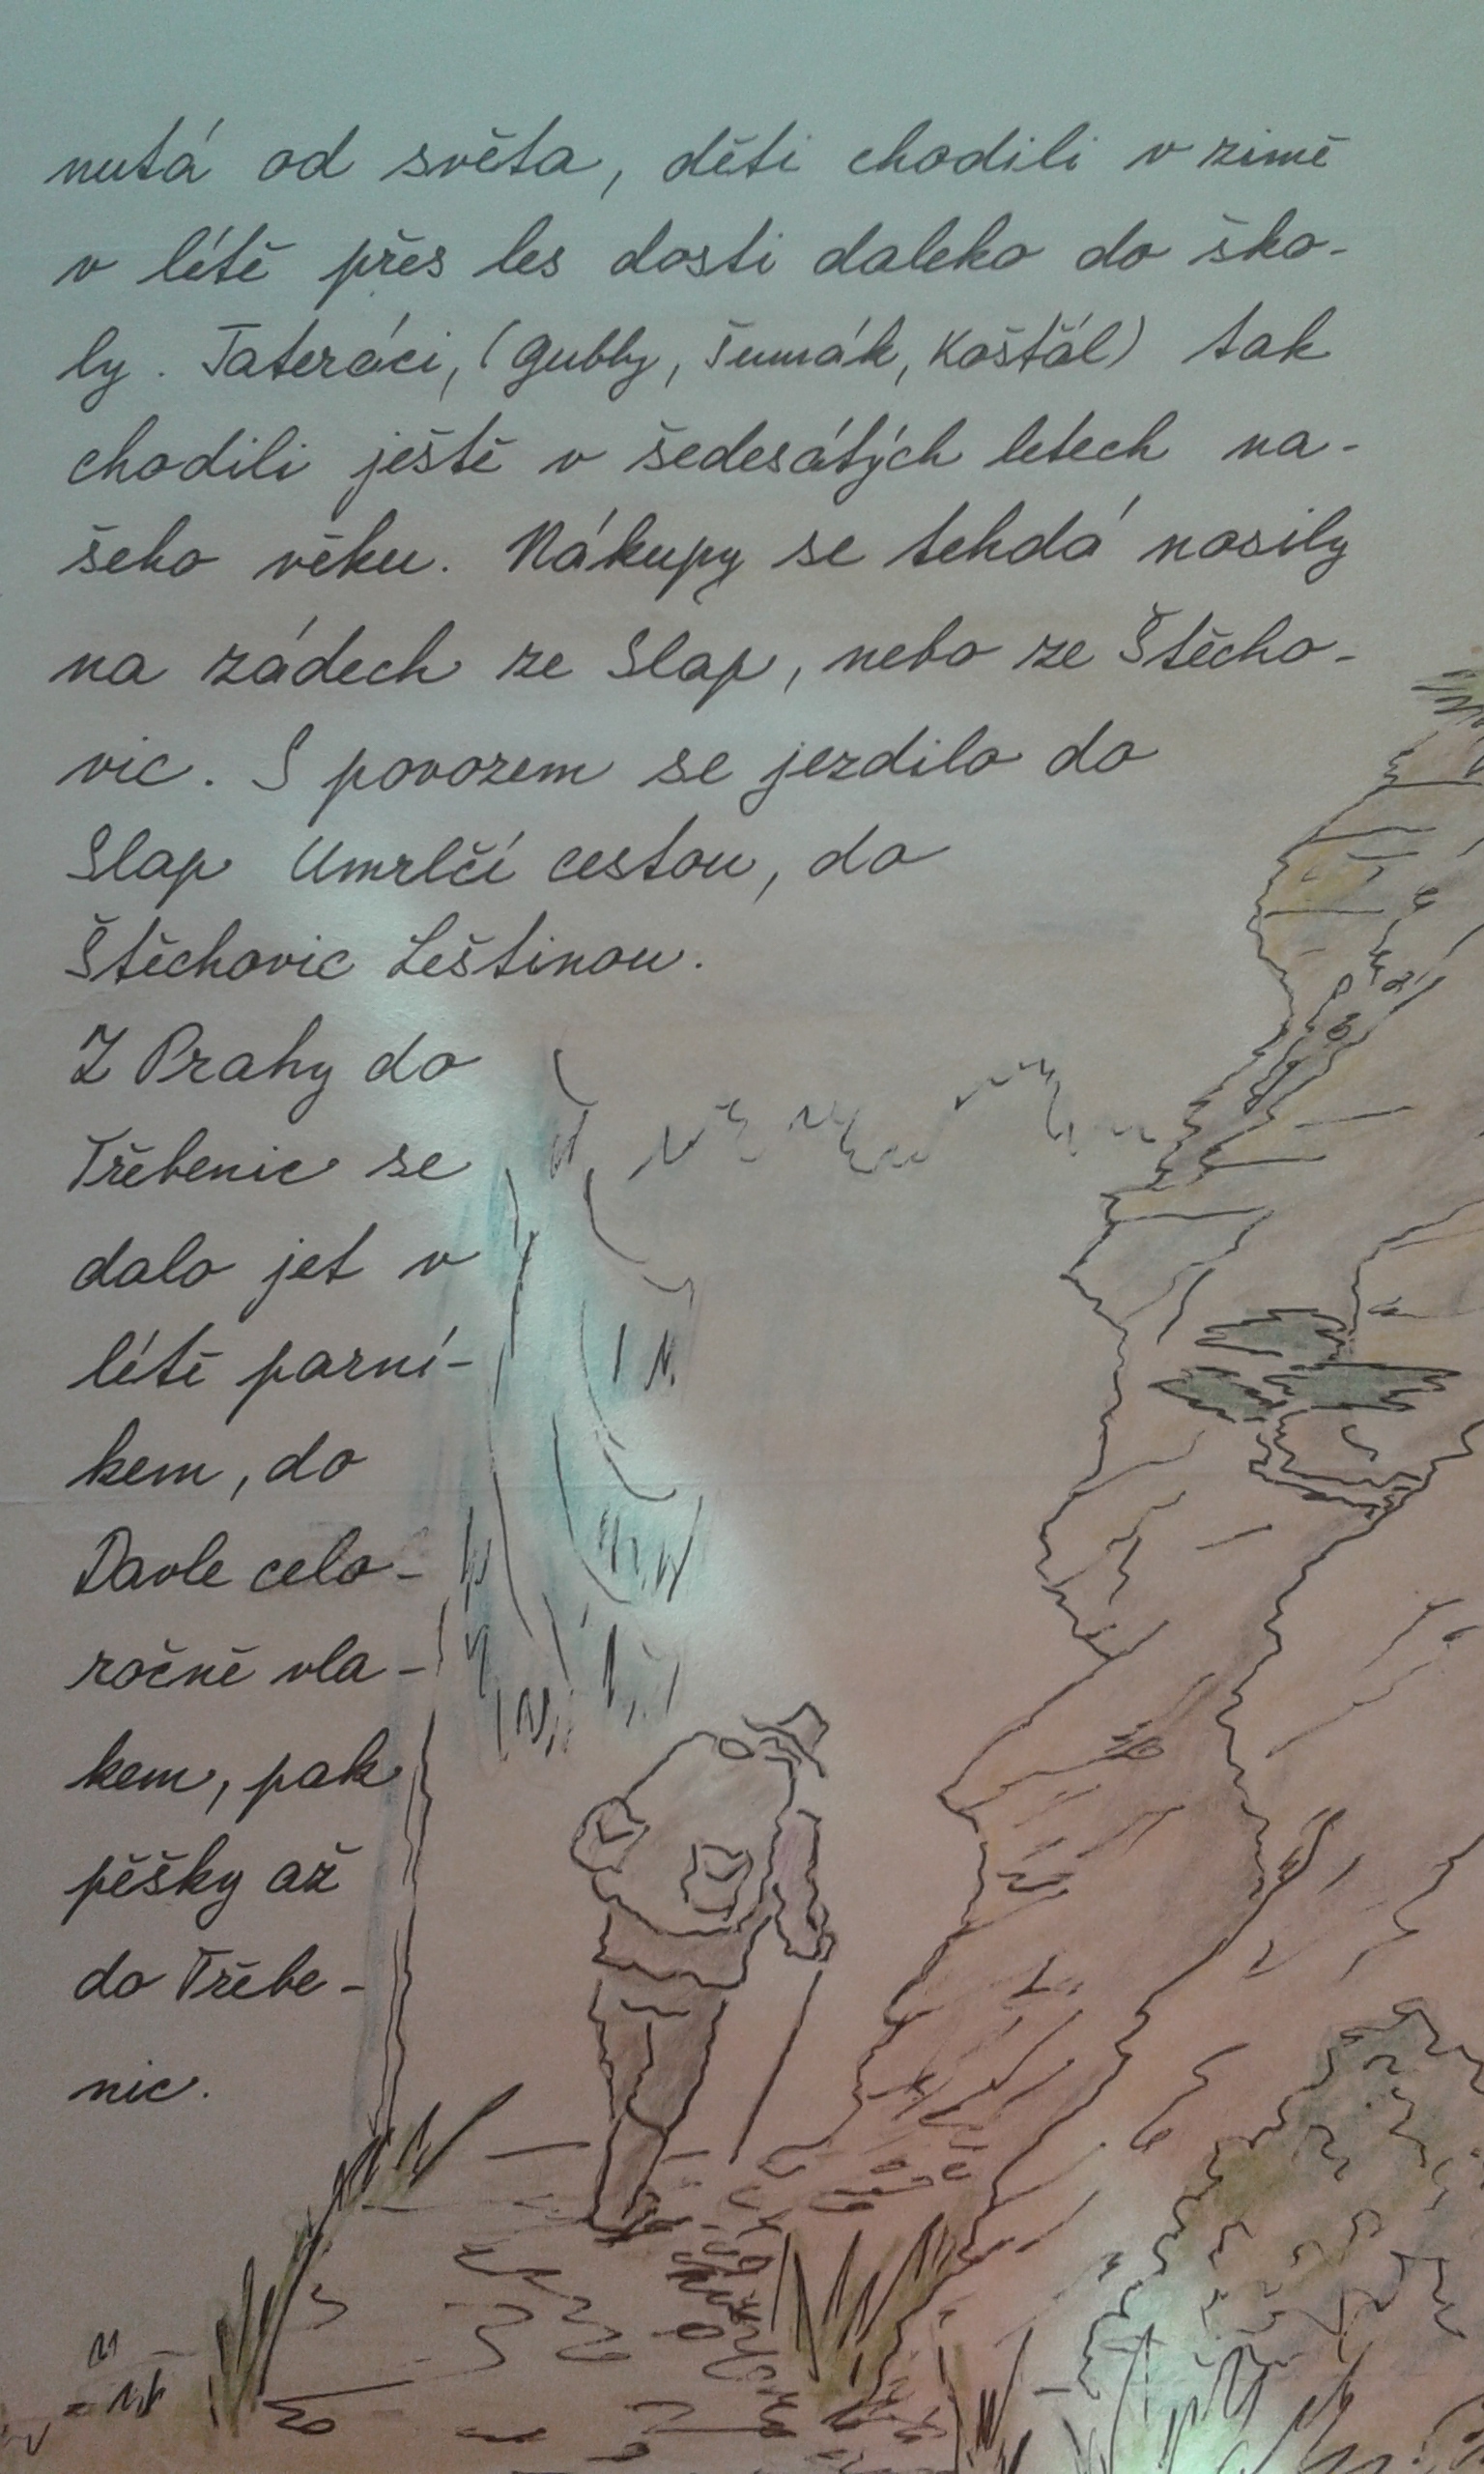 nutá od světa, děti chodili v zimě
v létě přes les dosti daleko do ško-
ly. Tateráci, (Gubby, Šumák, Košťál) tak
chodili ještě v šedesátých letech na-
šeho věku. Nákupy se tehdá nosily
na zádech ze Slap, nebo ze Štěcho-
vic. S povozem se jezdilo do
Slap Umrlčí cestou, do
Štěchovic Leštinou.
Z Prahy do
Třebenic se
dalo jet v
létě parní-
kem, do
Davle celo-
ročně vla-
kem, pak
pěšky až
do Třebe-
nic.